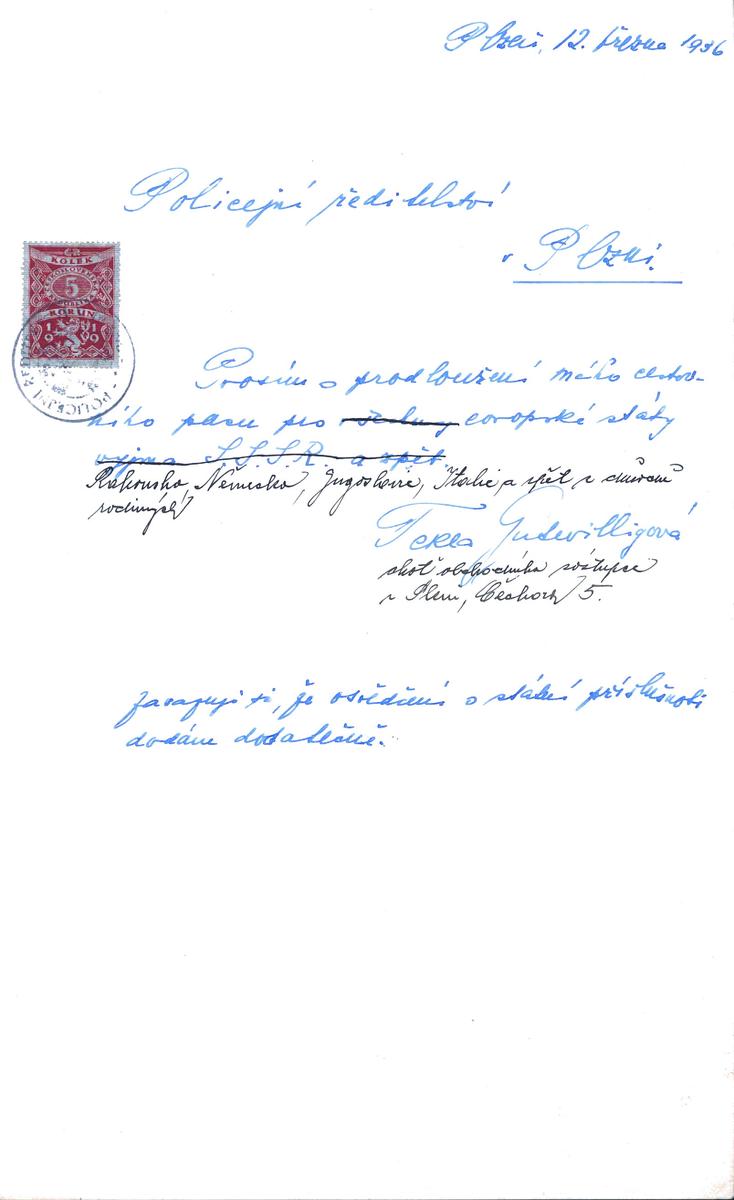 Plzeň, 12. března 1936
Policejní ředitelství
v Plzni.
ČR
KOLEK
5
KORUN
1919
POLICEJNÍ ŘED
Prosím o prodloužení mého cestov-
ního pasu pro všechny evropské státy
vyjma S.S.S.R. a zpět.
Rakousko, Německo, Jugoslavie, Italie a zpět z důvodů
rodinných
Tekla Gutwilligová
choť obchodního zástupce
v Plzni, 5.
Zavazuji se, že osvědčení o státní příslušnosti
dodám dodatečně.